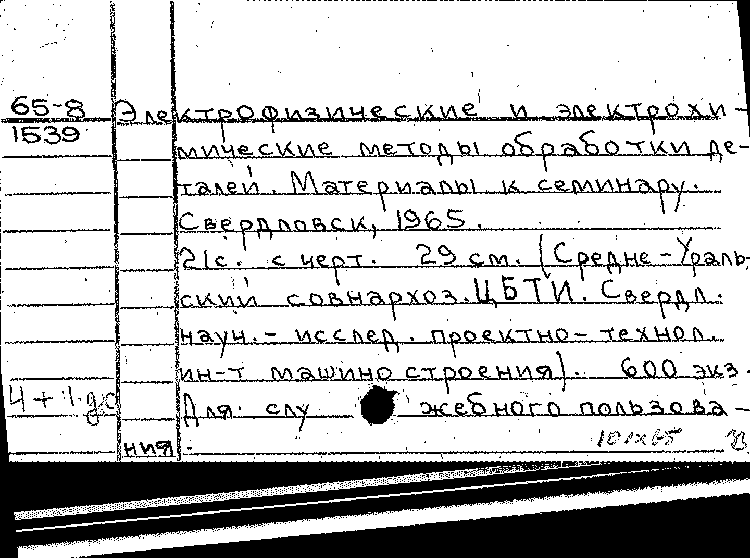 65-8 Электрофизические и электрохи-
1539
мические методы обработки де-
талей. Материалы к семинару.
Свердловск, 1965.
21с. с черт. 29 см. (Средне-Ураль-
ский совнархоз. ЦБТИ. Свердл.
науч.-исслед. проектно-технол.
ин-т машиностроения). 600 экз.
Для слу жебного пользова-
ния.